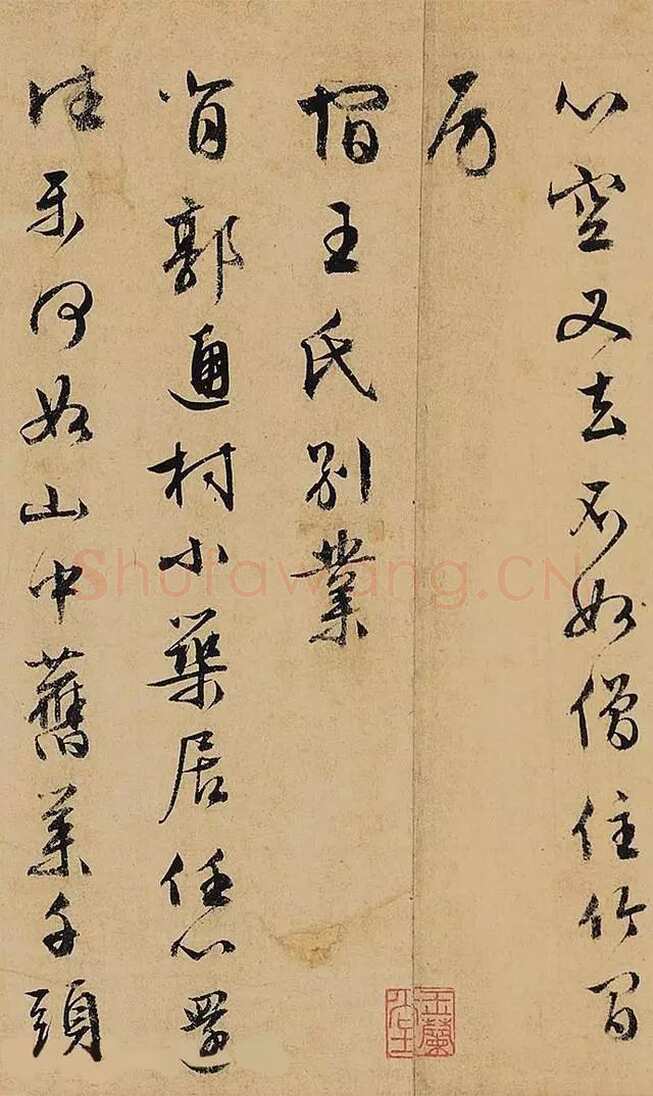 心空又去不如僧住竹間
房
宿王氏別業
背郭村小築居任心還
往樂何如山中舊業千頭
玉蘭堂
Shufawang.CN